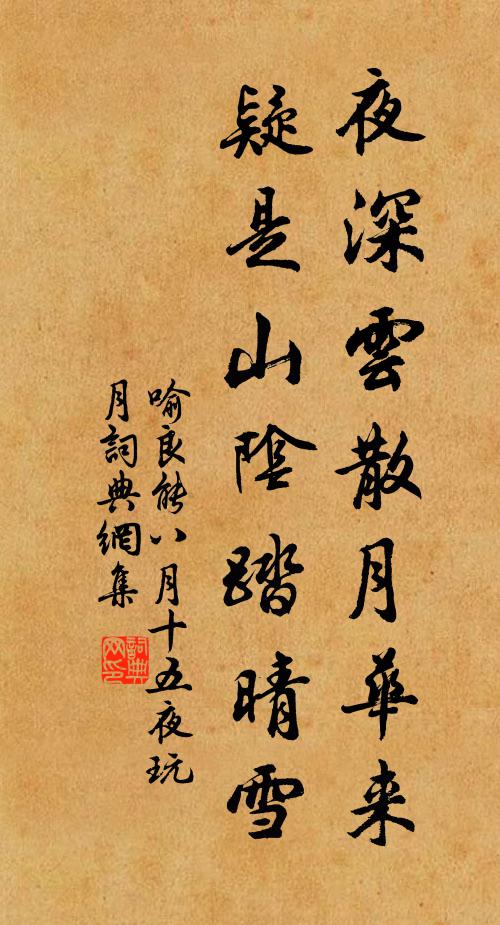 夜深雲散月華来
疑是山陰踏晴雪
喻良能八月十五夜玩
月詞典網集
詞典
网印